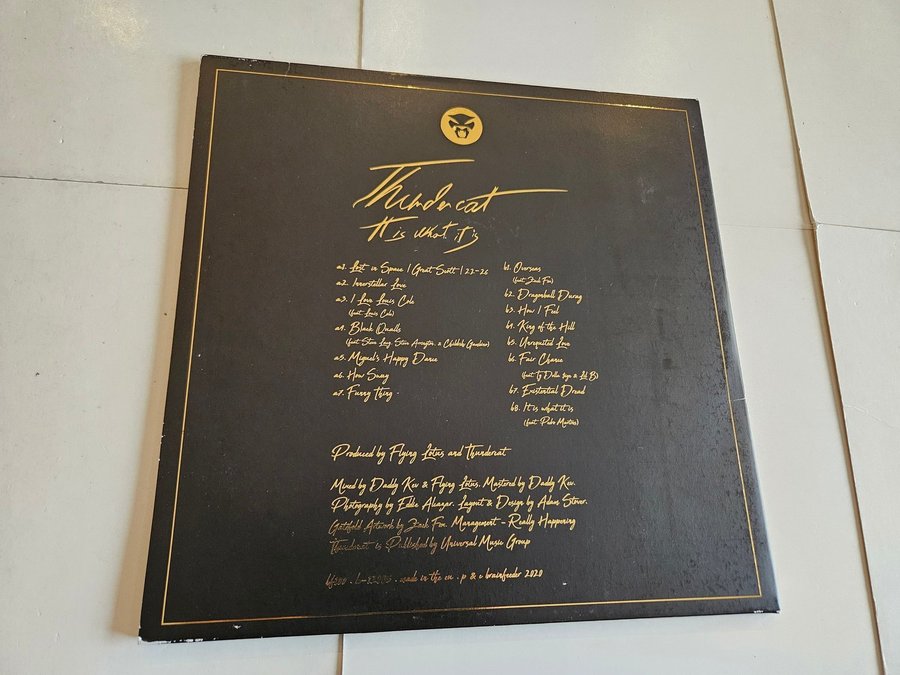 Thundercat
It is what it is
a1. Lost in Space / Great Scott / 22-26
a2. Innerstellar Love
a3. I Love Louis Cole
(feat. Louis Cole)
a4. Black Qualls
(feat. Steve Lacy, Steve Arrington, & Childish Gambino)
a5. Miguel's Happy Dance
a6. How Sway
a7. Funny Thing
b1. Overseas
(feat. Zack Fox)
b2. Dragonball Durag
b3. How I Feel
b4. King of the Hill
b5. Unrequited Love
b6. Fair Chance
(feat. Ty Dolla $ign & Lil B)
b7. Existential Dread
b8. It is what it is
(feat. Pedro Martins)
Produced by Flying Lotus and Thundercat
Mixed by Daddy Kev & Flying Lotus. Mastered by Daddy Kev.
Photography by Eddie Alcazar. Layout & Design by Adam Stover.
Gatefold Artwork by Zack Fox. Management - Really Happening
Thundercat is Published by Universal Music Group
made in the eu . p & c brainfeeder 2020